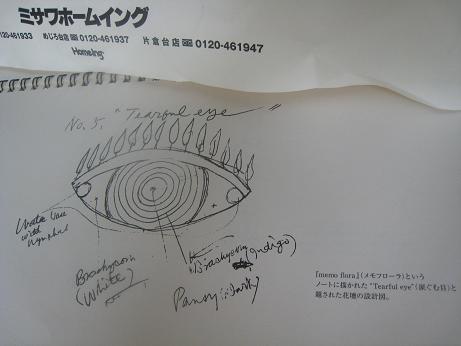 ミサワホームイング
0120-461933 めじろ台店 0120-461937 片倉台店 0120-461947
HomeIng
No. 5. "Tearful eye"
Water
with
nymphea
Brachycom
(White)
Brachycom (Indigo)
Pansy (Dark)
『memo flora』(メモフローラ)という
ノートに描かれた"Tearful eye"(涙ぐむ目)と
題された花壇の設計図。